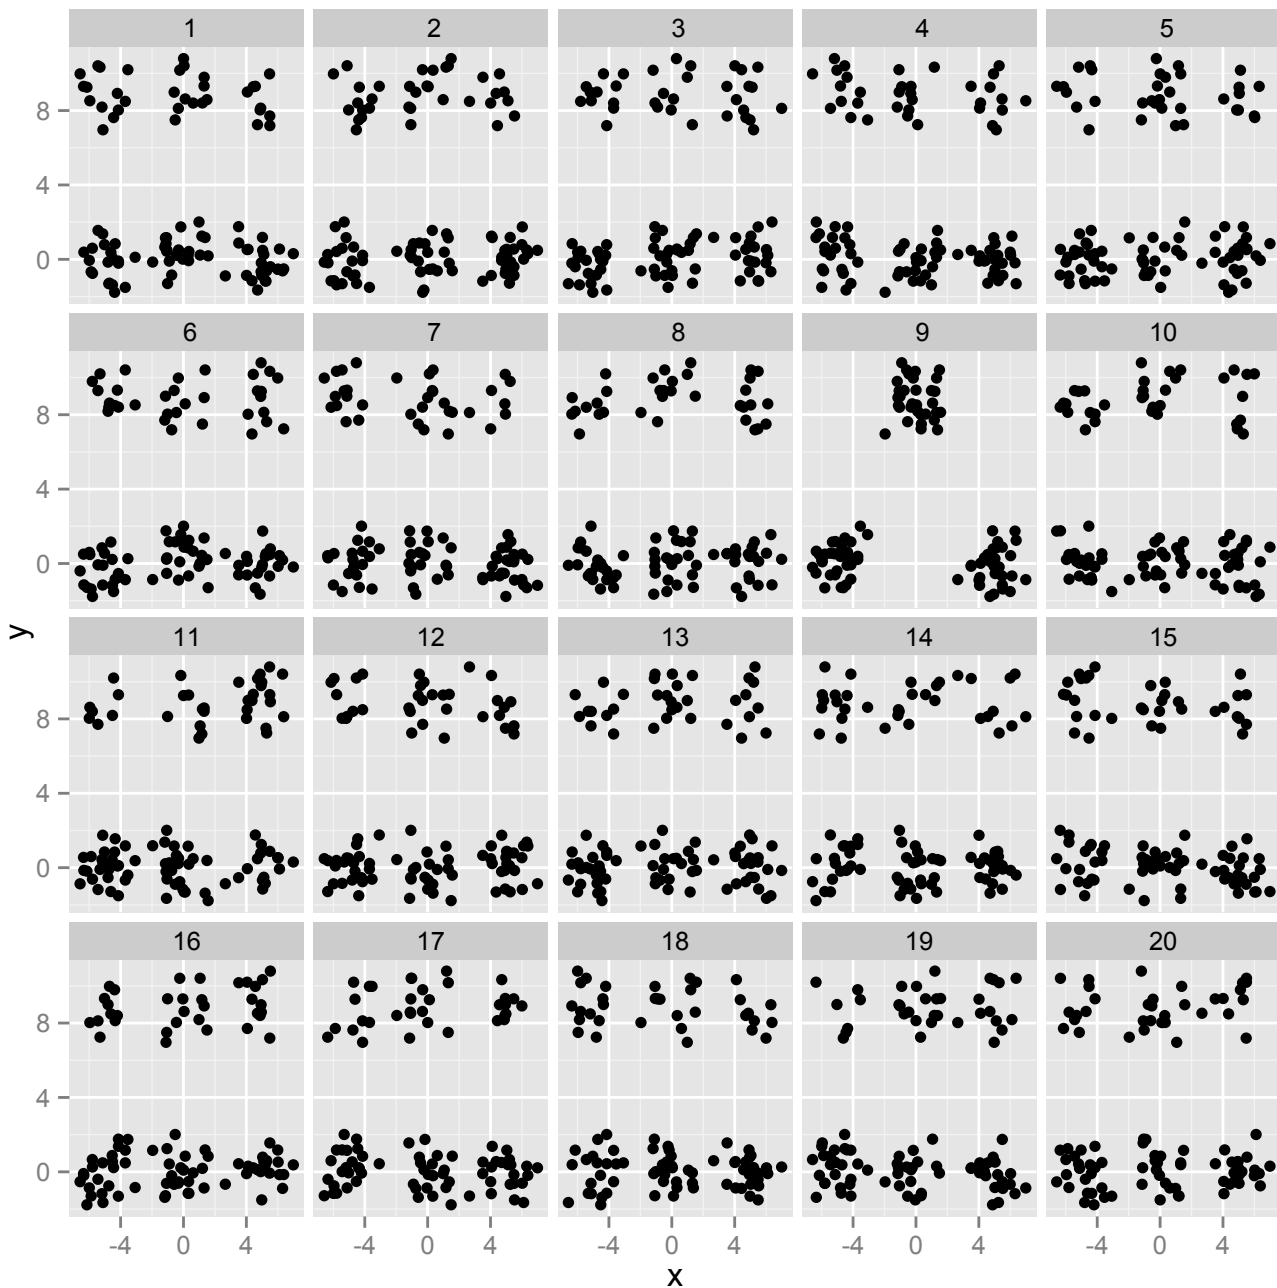 1 2 3 4 5
8
4
0
6 7 8 9 10
8
4
0
y
11 12 13 14 15
8
4
0
16 17 18 19 20
8
4
0
-4 0 4 -4 0 4 -4 0 4 -4 0 4 -4 0 4
x